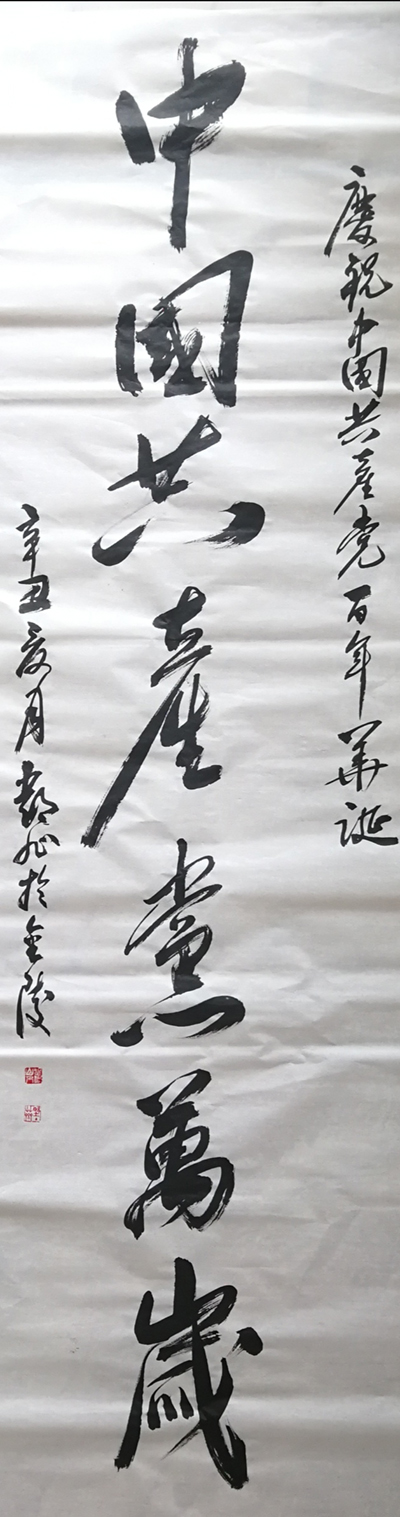 慶祝中国共產党百年華誕
中國共產黨萬歲
辛丑夏月 於金陵